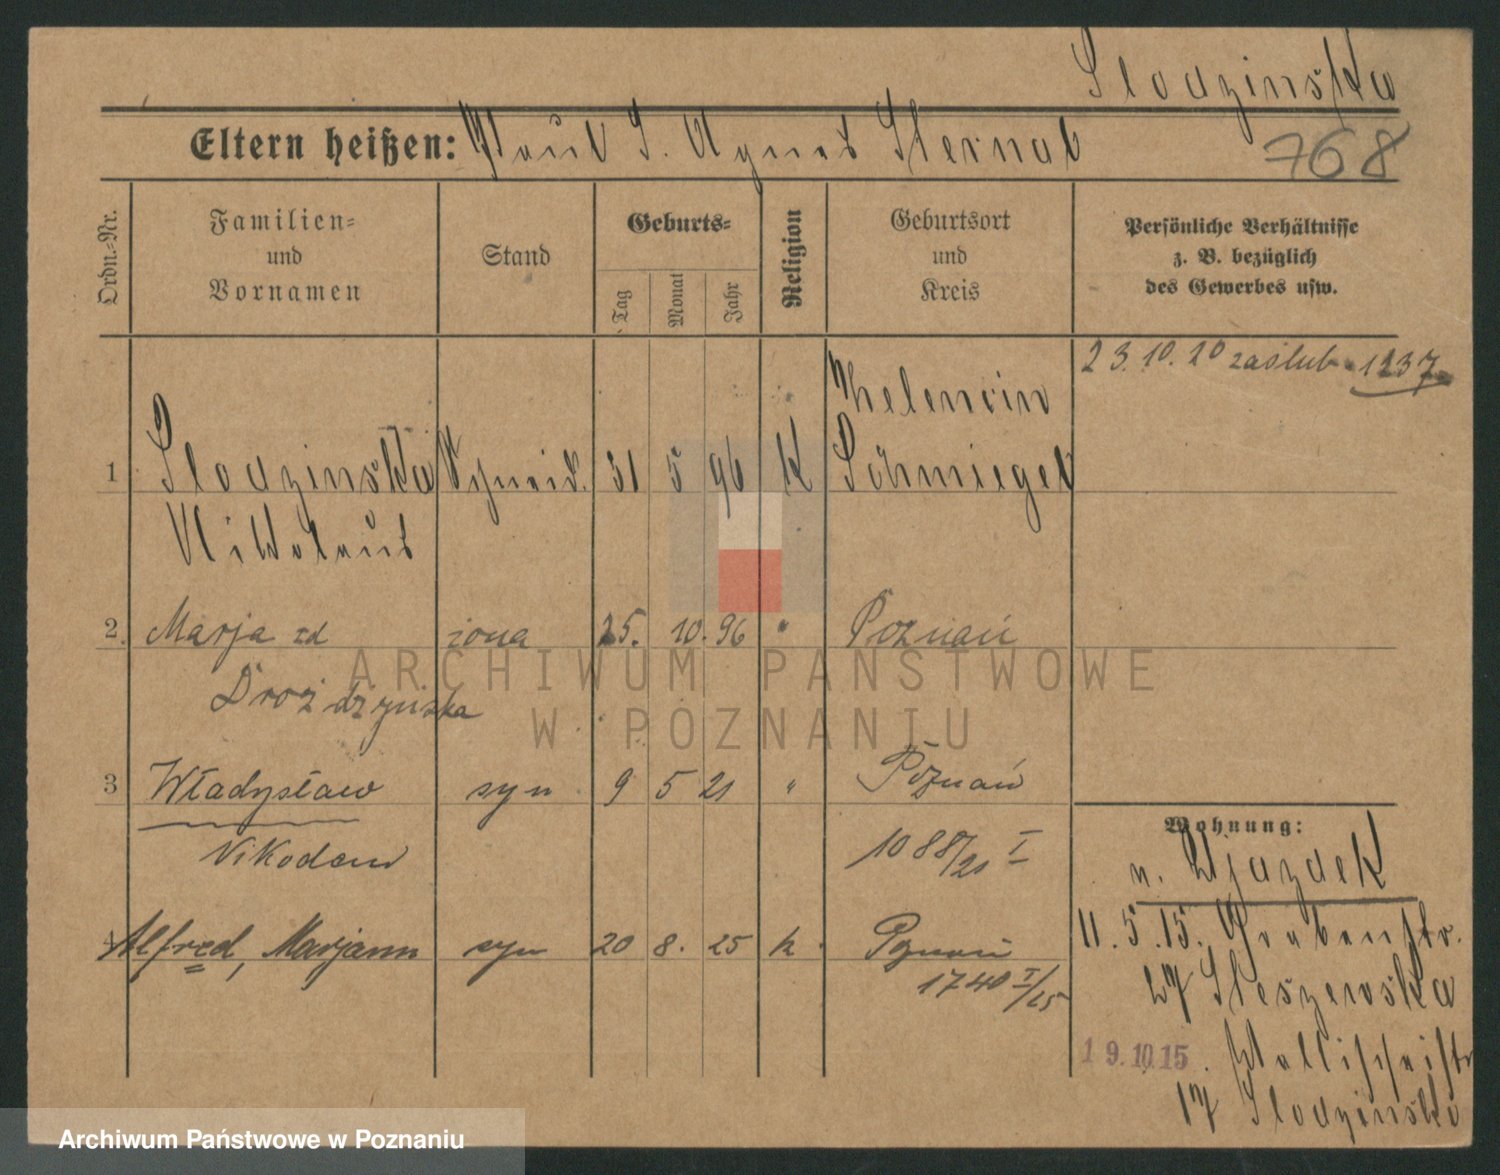 Slodzinska
Eltern heißen: Paul S. Agnes Sternal
768
Ordn.-Nr.
Familien-
und
Vornamen
Stand
Geburts-
Tag
Monat
Jahr
Religion
Geburtsort
und
Kreis
Persönliche Verhältnisse
z. B. bezüglich
des Gewerbes usw.
23.10.20 zaślub. 1237
1 Slodzinska 31 5 96 K Schmiegel
Nikolaus
2. Marja zd żona 25. 10. 96 " Poznań
Drożdżyńska
3 Władysław syn 9 5 21 " Poznań
Nikodem 1088/21 I
4 Alfred, Marjann syn 20 8. 25 k Poznań
1740 I/25
Wohnung:
v. Ujazdek
11.5.15. Grabenstr.
27 Steszewska
19.10.15. Wallischeistr
17 Slodzinska
ARCHIWUM PAŃSTWOWE
W POZNANIU
Archiwum Państwowe w Poznaniu